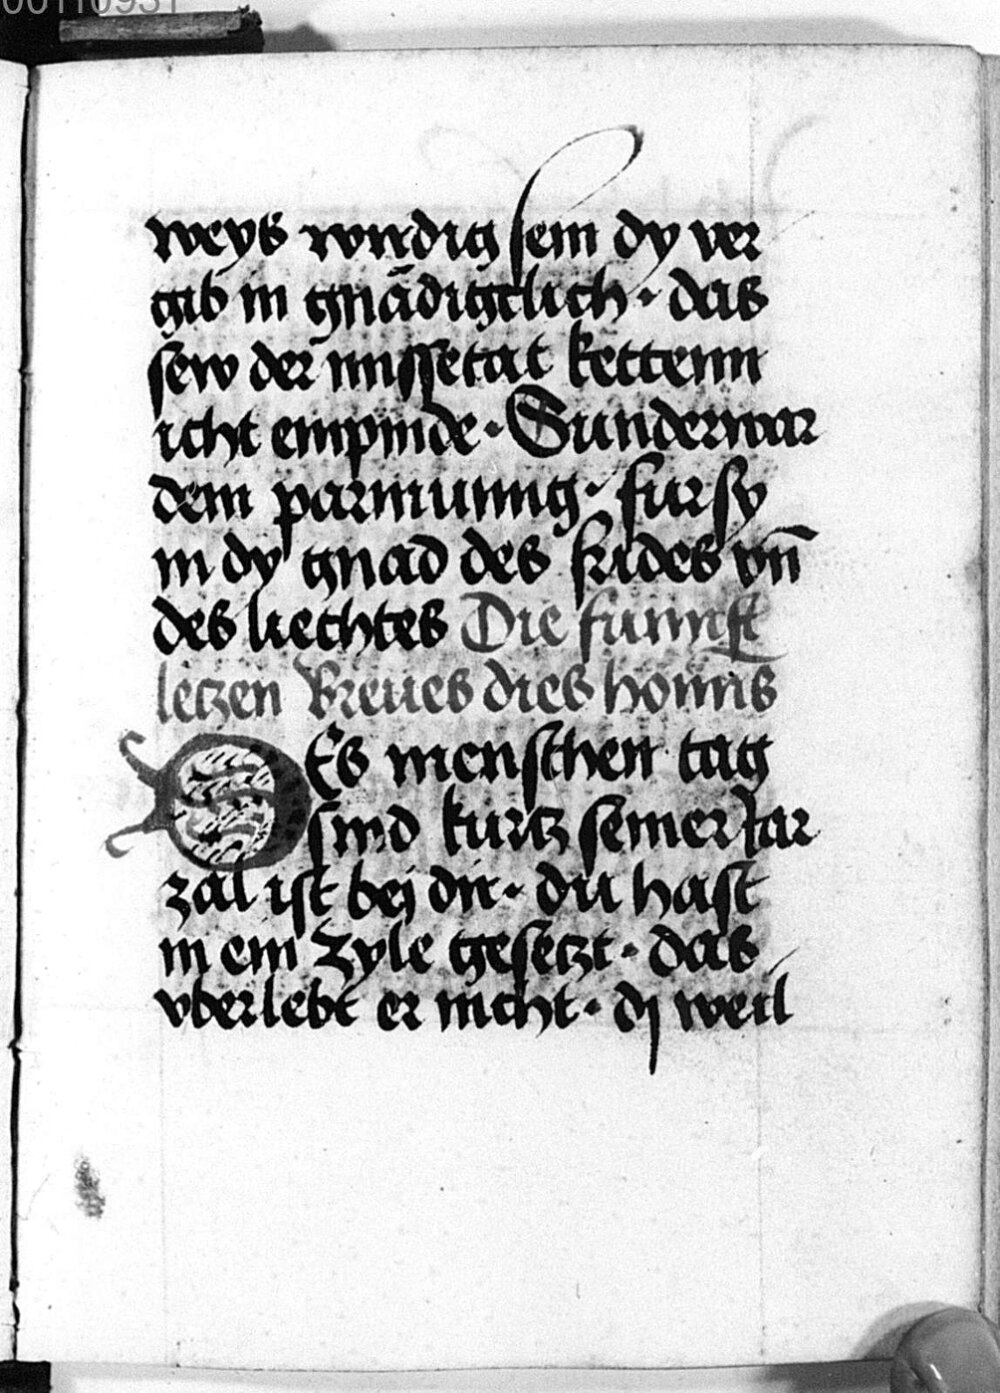 00110931
weys wirdig sein dy ver
gib in gnädigclich · das
sew der missetat kettenn
icht empinde · Sunder war
dem parmunng · für sy
in dy gnad des frides vn̄
des liechtes Die fünnft
letzen Breues dies hominis
Des menschen tag
sind kurtz seiner Jar
zal ist bej dir · du hast
in ein zyle gesetzt · das
vberlebt er nicht · dj weil